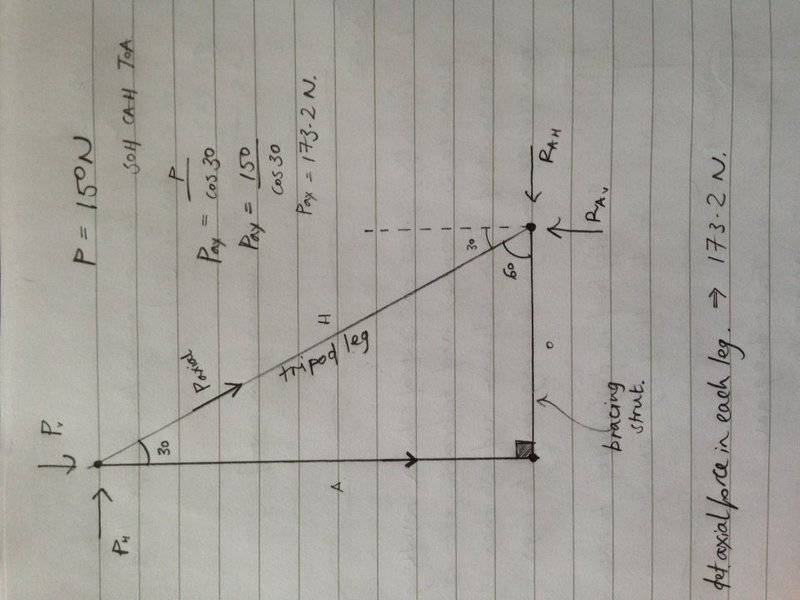 P = 150N
SOH CAH TOA
Pax = P / cos 30
Pax = 150 / cos 30
Pax = 173.2 N.
Pv
PH
30
Paxial
H
tripod leg
A
30
60
O
bracing
strut.
RAH
RAv
axial force in each leg. ⇒ 173.2 N.